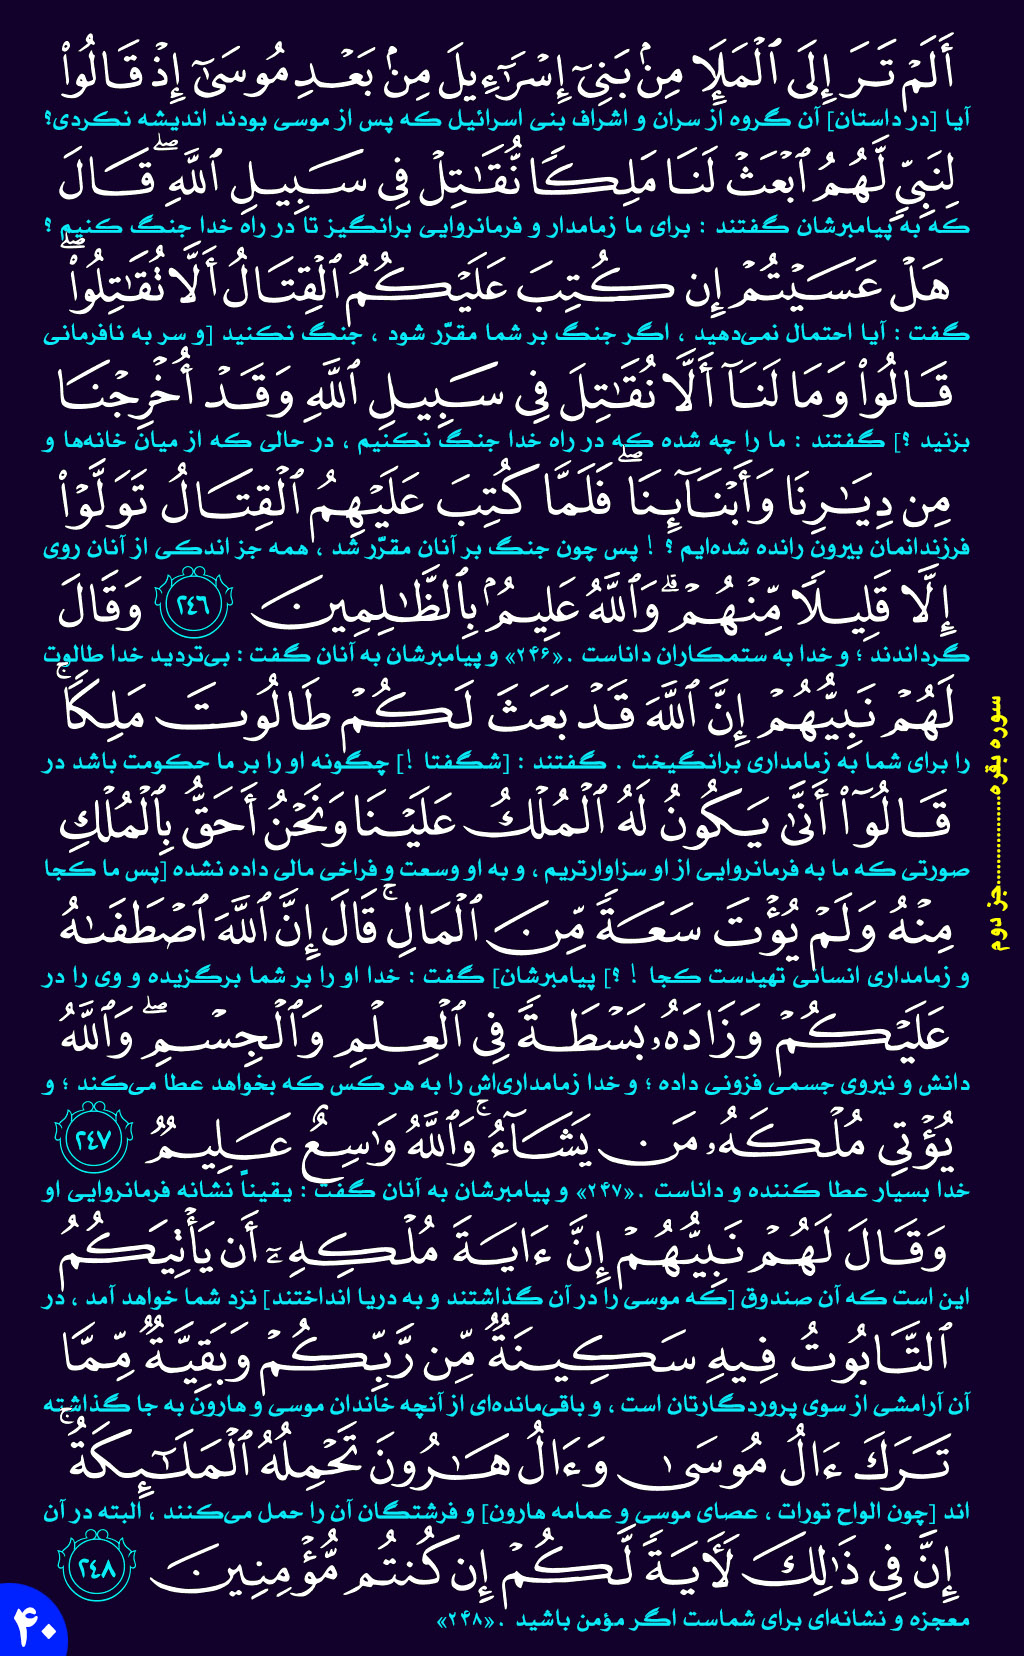 أَلَمْ تَرَ إِلَى ٱلْمَلَإِ مِنۢ بَنِىٓ إِسْرَٰٓءِيلَ مِنۢ بَعْدِ مُوسَىٰٓ إِذْ قَالُوا۟
آیا [در داستان] آن گروه از سران و اشراف بنی اسرائیل که پس از موسی بودند اندیشه نکردی؟
لِنَبِىٍّ لَّهُمُ ٱبْعَثْ لَنَا مَلِكًا نُّقَٰتِلْ فِى سَبِيلِ ٱللَّهِ ۖ قَالَ
که به پیامبرشان گفتند : برای ما زمامدار و فرمانروایی برانگیز تا در راه خدا جنگ کنیم ؟
هَلْ عَسَيْتُمْ إِن كُتِبَ عَلَيْكُمُ ٱلْقِتَالُ أَلَّا تُقَٰتِلُوا۟ ۖ
گفت : آیا احتمال نمی‌دهید ، اگر جنگ بر شما مقرّر شود ، جنگ نکنید [و سر به نافرمانی
قَالُوا۟ وَمَا لَنَآ أَلَّا نُقَٰتِلَ فِى سَبِيلِ ٱللَّهِ وَقَدْ أُخْرِجْنَا
بزنید ؟] گفتند : ما را چه شده که در راه خدا جنگ نکنیم ، در حالی که از میان خانه‌ها و
مِن دِيَٰرِنَا وَأَبْنَآئِنَا ۖ فَلَمَّا كُتِبَ عَلَيْهِمُ ٱلْقِتَالُ تَوَلَّوْا۟
فرزندانمان بیرون رانده شده‌ایم ؟ ! پس چون جنگ بر آنان مقرّر شد ، همه جز اندکی از آنان روی
إِلَّا قَلِيلًا مِّنْهُمْ ۗ وَٱللَّهُ عَلِيمٌۢ بِٱلظَّٰلِمِينَ ٢٤٦ وَقَالَ
گرداندند ؛ و خدا به ستمکاران داناست .«۲۴۶» و پیامبرشان به آنان گفت : بی‌تردید خدا طالوت
لَهُمْ نَبِيُّهُمْ إِنَّ ٱللَّهَ قَدْ بَعَثَ لَكُمْ طَالُوتَ مَلِكًا ۚ
را برای شما به زمامداری برانگیخت . گفتند : [شگفتا !] چگونه او را بر ما حکومت باشد در
قَالُوٓا۟ أَنَّىٰ يَكُونُ لَهُ ٱلْمُلْكُ عَلَيْنَا وَنَحْنُ أَحَقُّ بِٱلْمُلْكِ
صورتی که ما به فرمانروایی از او سزاوارتریم ، و به او وسعت و فراخی مالی داده نشده [پس ما کجا
مِنْهُ وَلَمْ يُؤْتَ سَعَةً مِّنَ ٱلْمَالِ ۚ قَالَ إِنَّ ٱللَّهَ ٱصْطَفَىٰهُ
و زمامداری انسانی تهیدست کجا ! ؟] پیامبرشان] گفت : خدا او را بر شما برگزیده و وی را در
عَلَيْكُمْ وَزَادَهُۥ بَسْطَةً فِى ٱلْعِلْمِ وَٱلْجِسْمِ ۖ وَٱللَّهُ
دانش و نیروی جسمی فزونی داده ؛ و خدا زمامداری‌اش را به هر کس که بخواهد عطا می‌کند ؛ و
يُؤْتِى مُلْكَهُۥ مَن يَشَآءُ ۚ وَٱللَّهُ وَٰسِعٌ عَلِيمٌ ٢٤٧
خدا بسیار عطا کننده و داناست .«۲۴۷» و پیامبرشان به آنان گفت : یقیناً نشانه فرمانروایی او
وَقَالَ لَهُمْ نَبِيُّهُمْ إِنَّ ءَايَةَ مُلْكِهِۦٓ أَن يَأْتِيَكُمُ
این است که آن صندوق [که موسی را در آن گذاشتند و به دریا انداختند] نزد شما خواهد آمد ، در
ٱلتَّابُوتُ فِيهِ سَكِينَةٌ مِّن رَّبِّكُمْ وَبَقِيَّةٌ مِّمَّا
آن آرامشی از سوی پروردگارتان است ، و باقی‌مانده‌ای از آنچه خاندان موسی و هارون به جا گذاشته
تَرَكَ ءَالُ مُوسَىٰ وَءَالُ هَٰرُونَ تَحْمِلُهُ ٱلْمَلَٰٓئِكَةُ ۚ
اند [چون الواح تورات ، عصای موسی و عمامه هارون] و فرشتگان آن را حمل می‌کنند ، البته در آن
إِنَّ فِى ذَٰلِكَ لَءَايَةً لَّكُمْ إِن كُنتُم مُّؤْمِنِينَ ٢٤٨
معجزه و نشانه‌ای برای شماست اگر مؤمن باشید .«۲۴۸»
سوره بقره..................جز دوم
۴۰